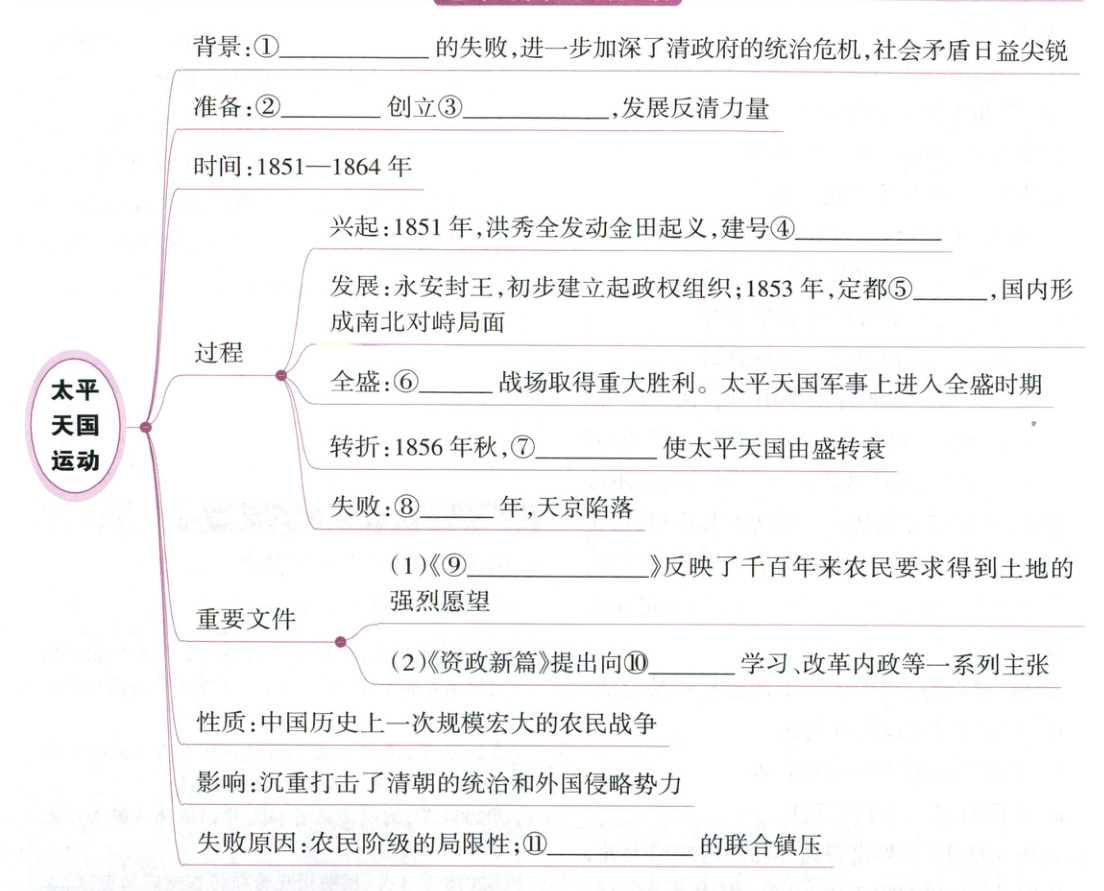 背景:①____________的失败,进一步加深了清政府的统治危机,社会矛盾日益尖锐
准备:②________创立③____________,发展反清力量
时间:1851—1864年
兴起:1851年,洪秀全发动金田起义,建号④____________
发展:永安封王,初步建立起政权组织;1853年,定都⑤______,国内形
成南北对峙局面
过程
全盛:⑥______战场取得重大胜利。太平天国军事上进入全盛时期
太平
天国
运动
转折:1856年秋,⑦__________使太平天国由盛转衰
失败:⑧______年,天京陷落
(1)《⑨_______________》反映了千百年来农民要求得到土地的
强烈愿望
重要文件
(2)《资政新篇》提出向⑩_______学习、改革内政等一系列主张
性质:中国历史上一次规模宏大的农民战争
影响:沉重打击了清朝的统治和外国侵略势力
失败原因:农民阶级的局限性;⑪____________的联合镇压